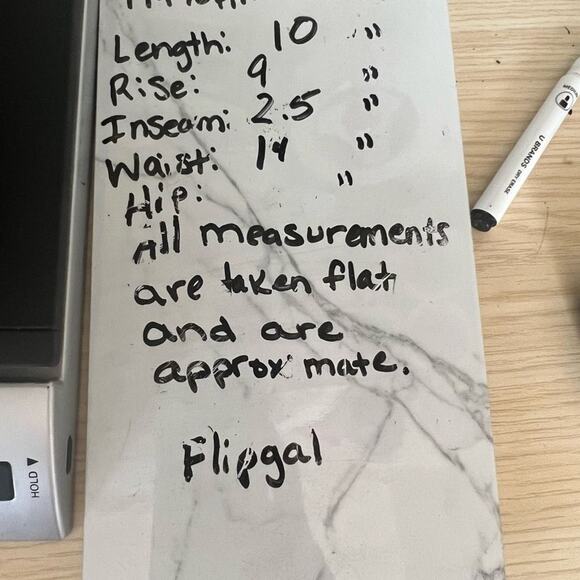 Length: 10 "
Rise: 9 "
Inseam: 2.5 "
Waist: 14 "
Hip: "
All measurements
are taken flat
and are
approximate.
Flipgal
U BRANDS DRY ERASE
HOLD